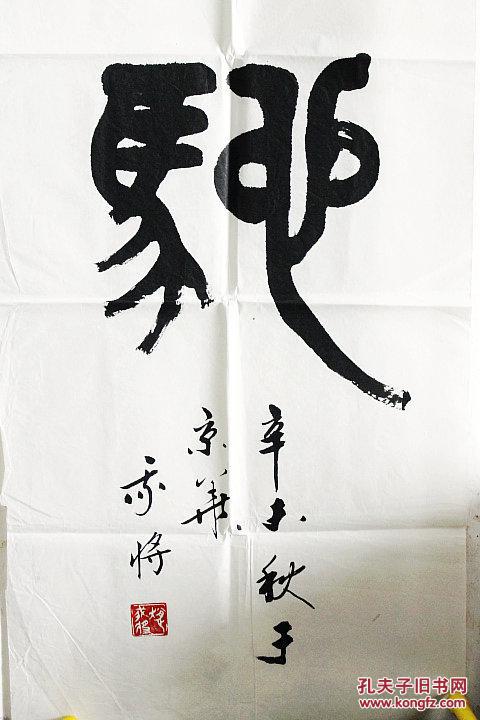 馳
辛未秋于
京華
将
孔夫子旧书网
www.kongfz.com